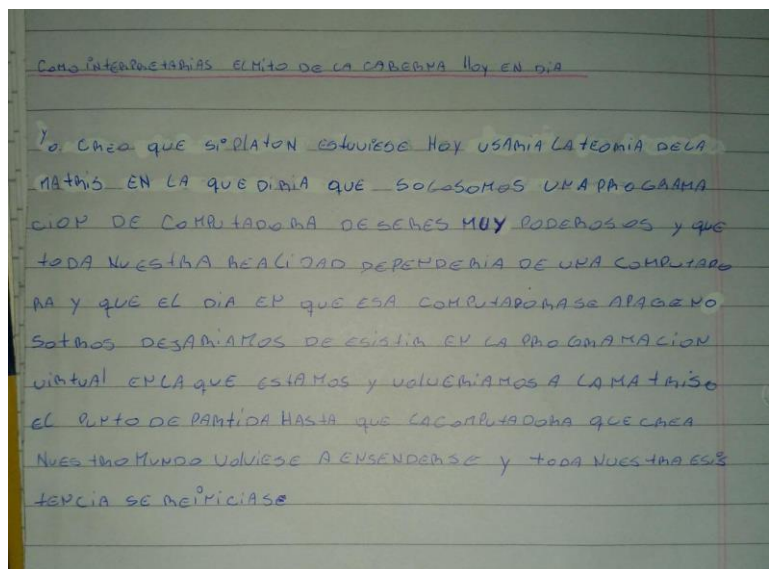 COMO INTERPRETARIAS EL MITO DE LA CABERNA HOY EN DIA
YO CREO QUE SI PLATON ESTUVIESE HOY USARIA LA TEORIA DE LA
MATRIS EN LA QUE DIRIA QUE SOLO SOMOS UNA PROGRAMA
CION DE COMPUTADORA DE SERES MUY PODEROSOS Y QUE
TODA NUESTRA REALIDAD DEPENDERIA DE UNA COMPUTADO
RA Y QUE EL DIA EN QUE ESA COMPUTADORA SE APAGE NO
SOTROS DEJARIAMOS DE ESISTIR EN LA PROGRAMACION
VIRTUAL EN LA QUE ESTAMOS Y VOLVERIAMOS A LA MATRIS O
EL PUNTO DE PARTIDA HASTA QUE LA COMPUTADORA QUE CREA
NUESTRO MUNDO VOLVIESE A ENSENDERSE Y TODA NUESTRA ESIS
TENCIA SE REINICIASE